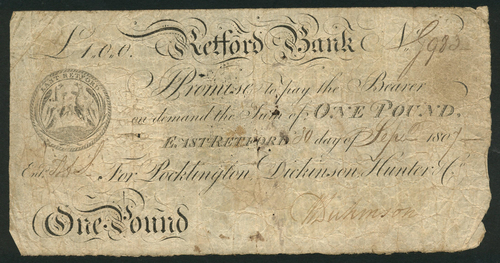 £1.0.0. Retford Bank No
EAST RETFORD
I Promise to pay the Bearer
on demand the Sum of ONE POUND.
EAST RETFORD 30 day of Sept 1807
For Pocklington Dickinson Hunter & Co.
One Pound
Dickinson